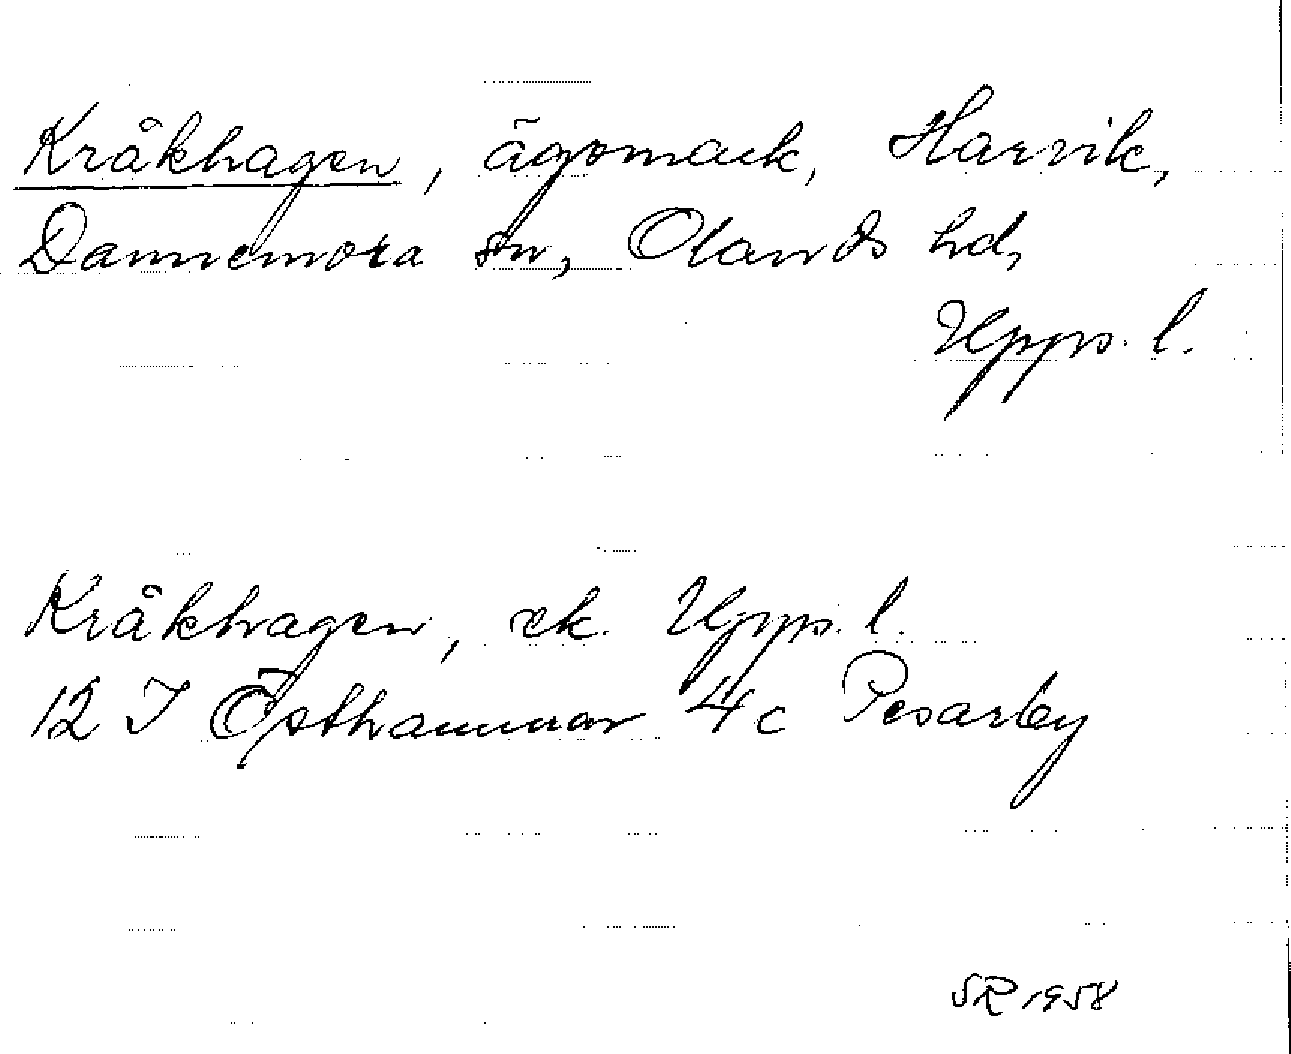 Kråkhagen, ägomark, Harvik,
Dannemora sn, Olands hd,
Upps. l.
Kråkhagen, ek. Upps. l.
12 I Östhammar 4c Pesarby
SR 1958